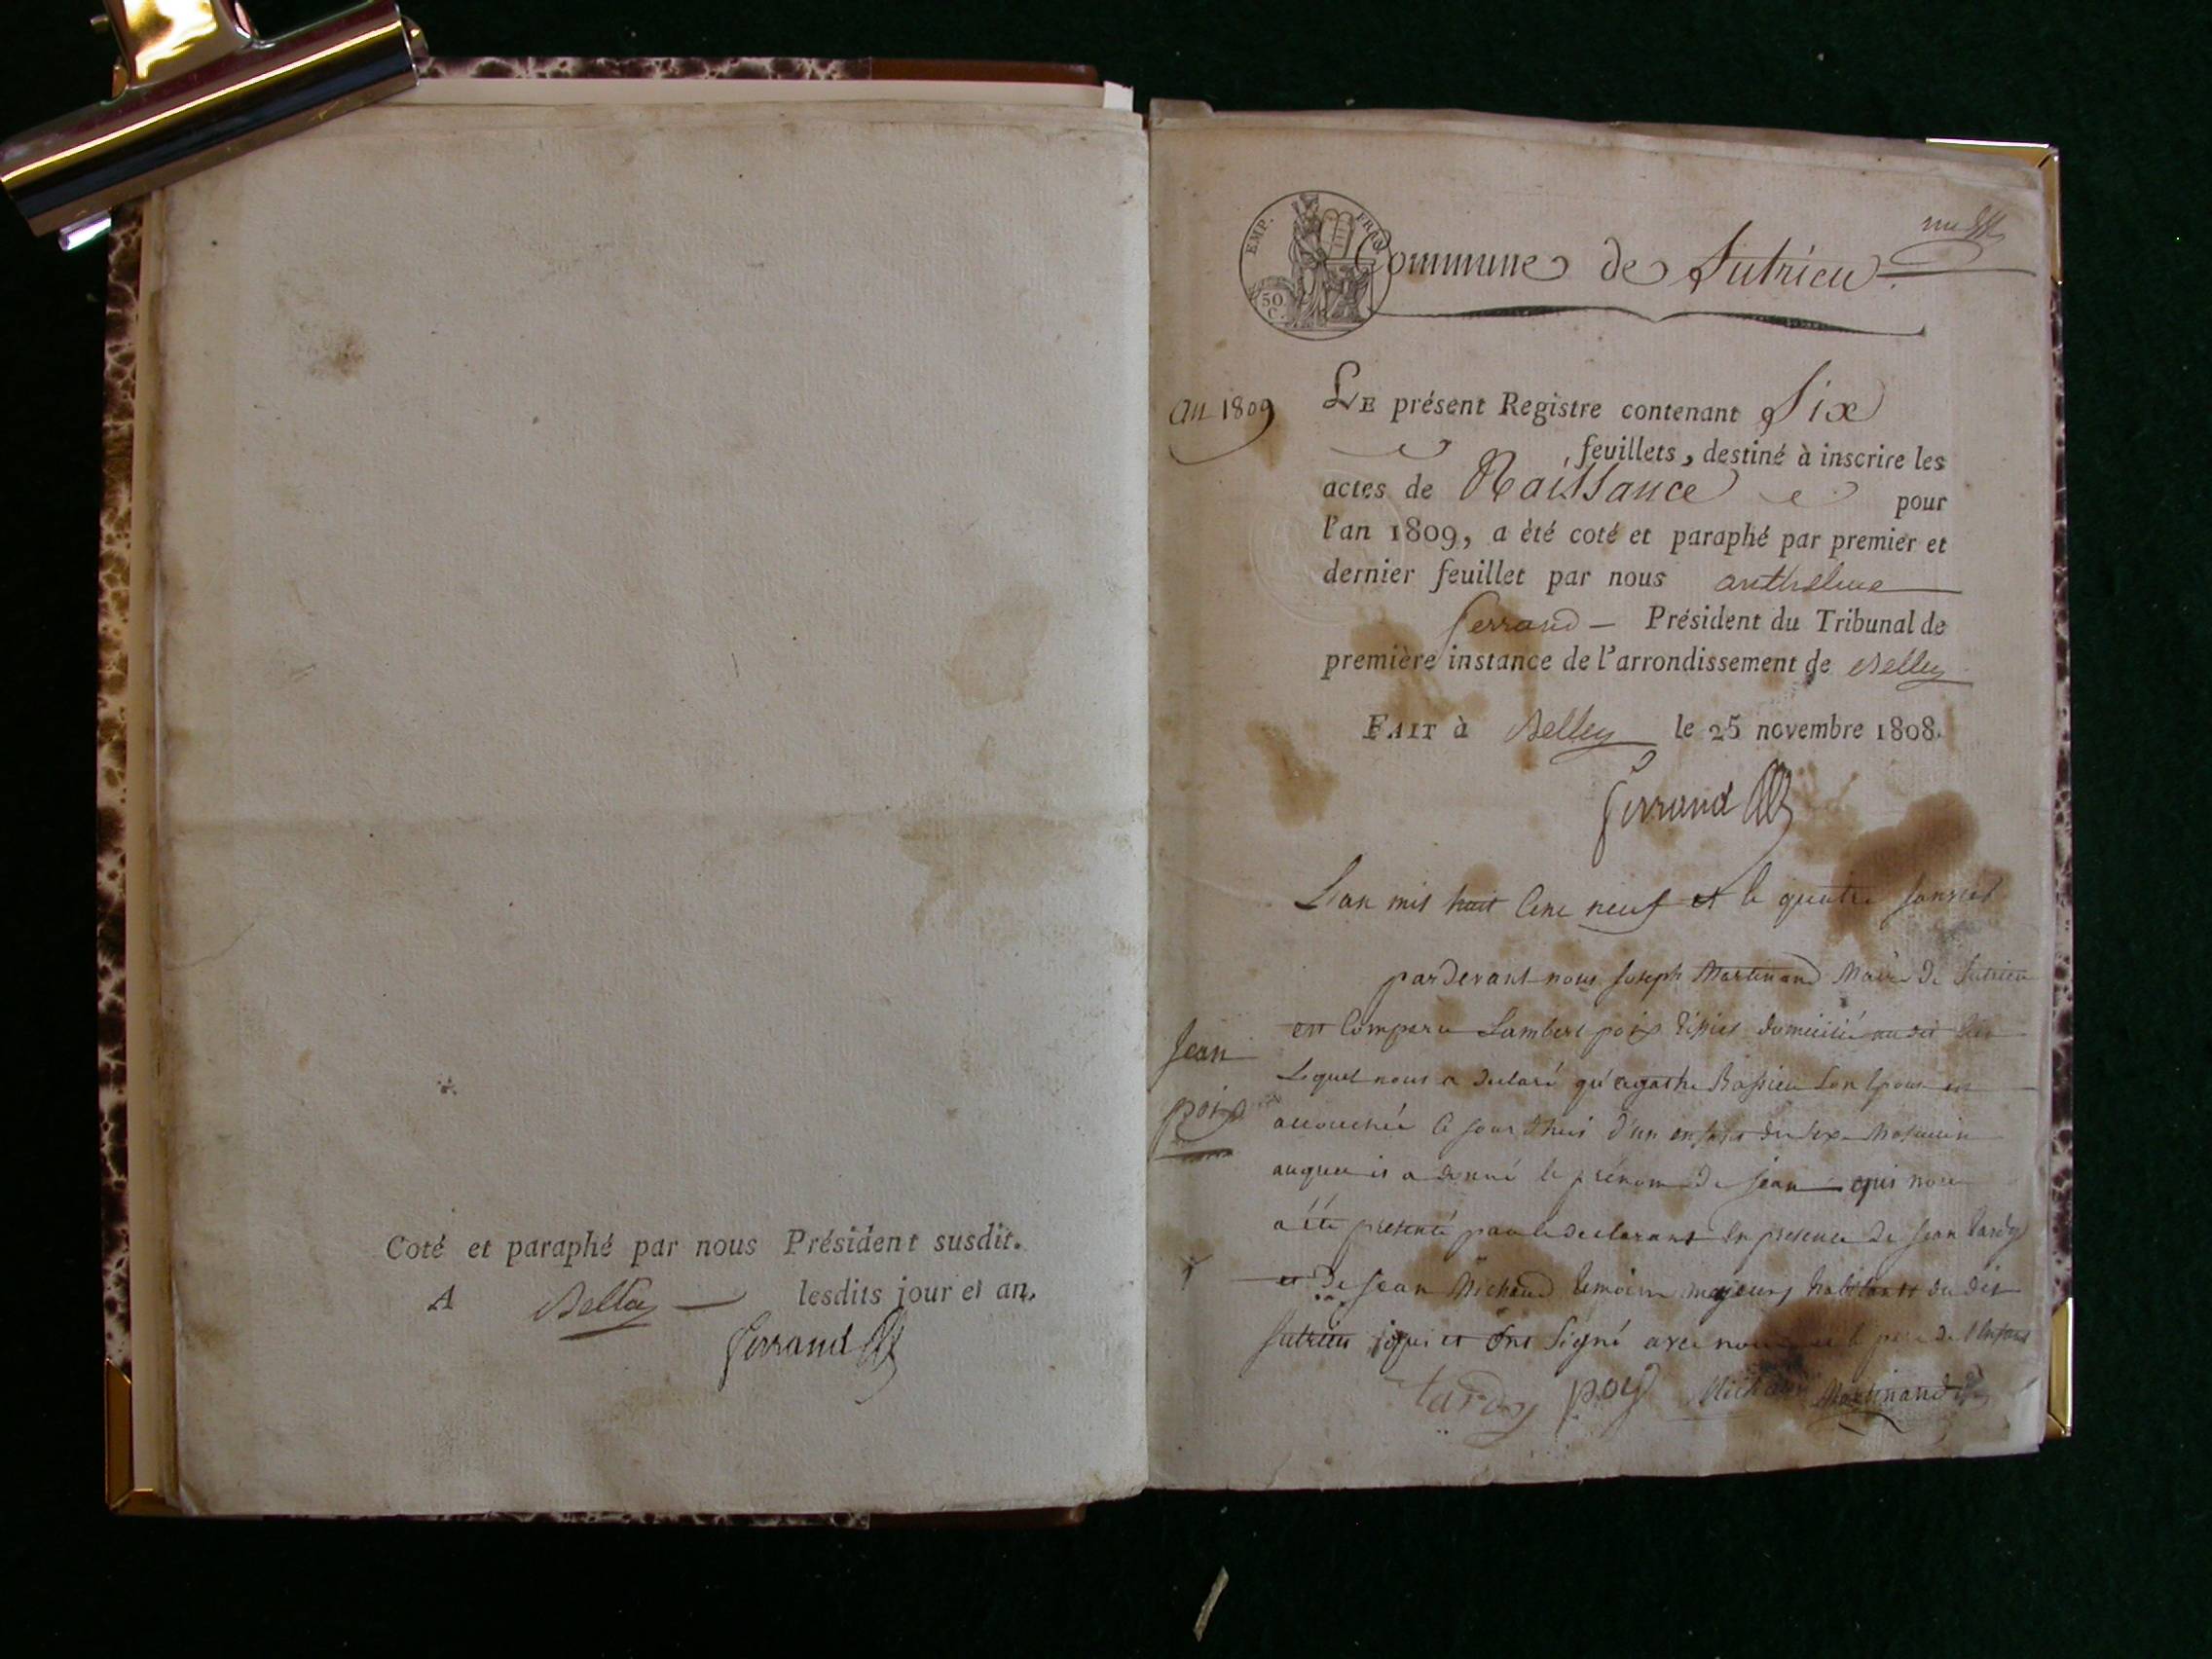 Coté et paraphé par nous Président susdit.
A Belley lesdits jour et an.
Ferrand
EMP. FRA
50
C.
Commune de Sutrieu
an 1809
LE présent Registre contenant Six
feuillets, destiné à inscrire les
actes de Naissance pour
l'an 1809, a été coté et paraphé par premier et
dernier feuillet par nous anthelme
ferrand — Président du Tribunal de
première instance de l'arrondissement de Belley
FAIT à Belley le 25 novembre 1808.
Ferrand
L'an mil huit Cent neuf et le quatre janvier
pardevant nous joseph Martinand Maire de Sutrieu
est Comparu Lambert poix domicilié audit lieu
Lequel nous a declaré qu'agathe Bassieu Son Epouse est
accouchée Ce jourd'hui d'un enfant du sexe Masculin
auquel il a donné le prénom de jean qui nous
a été presenté par le declarant En presence de jean tardy
et de jean Michaud temoins majeurs habitants du dit
Sutrieu et ont Signé avec nous le pere de l'Enfant
jean
poix
tardy poix Michaud Martinand